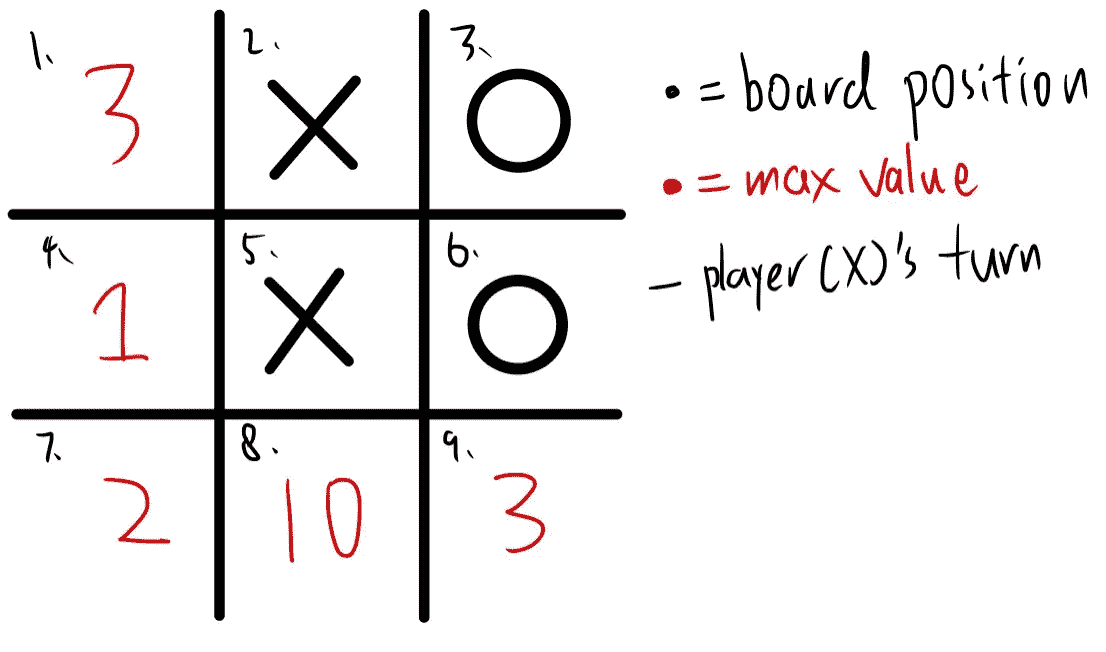 1. 3 2. X 3. O
4. 1 5. X 6. O
7. 2 8. 10 9. 3
• = board position
• = max value
- player (X)'s turn